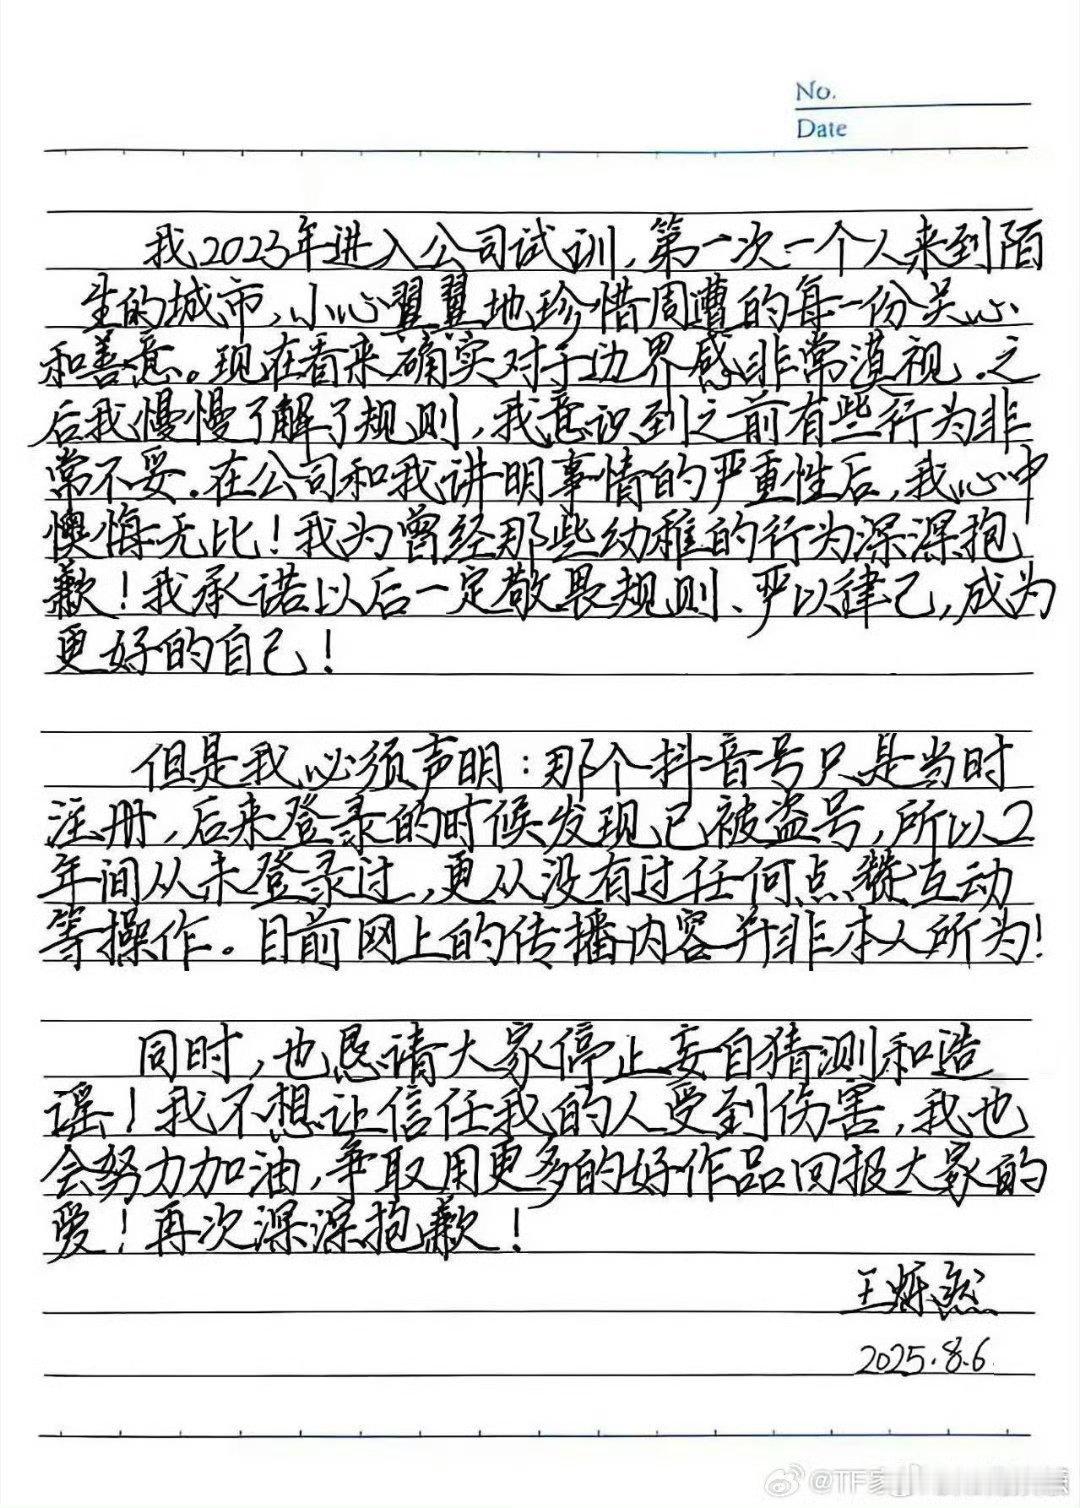 No.
Date
我2023年进入公司试训,第一次一个人来到陌
生的城市,小心翼翼地珍惜周遭的每一份关心
和善意。现在看来确实对于边界感非常漠视.之
后我慢慢了解了规则,我意识到之前有些行为非
常不妥.在公司和我讲明事情的严重性后,我心中
懊悔无比!我为曾经那些幼稚的行为深深抱
歉!我承诺以后一定敬畏规则、严以律己,成为
更好的自己!
但是我必须声明:那个抖音号只是当时
注册,后来登录的时候发现已被盗号,所以2
年间从未登录过,更从没有过任何点赞互动
等操作。目前网上的传播内容并非本人所为!
同时,也恳请大家停止妄自猜测和造
谣!我不想让信任我的人受到伤害,我也
会努力加油,争取用更多的好作品回报大家的
爱!再次深深抱歉!
王烁然
2025.8.6
@TF家